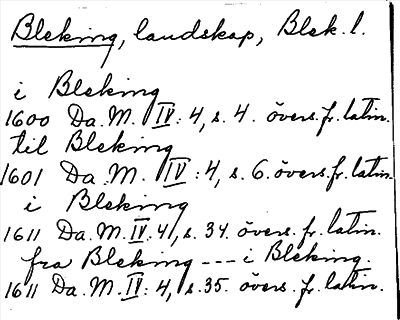 Bleking, landskap, Blek. l.
i Bleking
1600 Da. M. IV: 4, s. 4. övers. fr. latin.
til Bleking
1601 Da. M. IV: 4, s. 6. övers. fr. latin.
i Bleking
1611 Da. M. IV. 4, s. 34. övers. fr. latin.
fra Bleking --- i Bleking.
1611 Da. M. IV: 4, s. 35. övers. fr. latin.